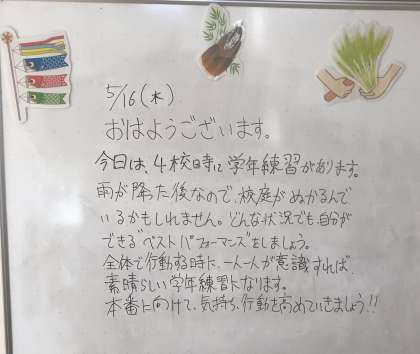 5/16(木)
おはようございます。
今日は、4校時に学年練習があります。
雨が降った後なので、校庭がぬかるんで
いるかもしれません。どんな状況でも、自分が
できる"ベストパフォーマンス"をしましょう。
全体で行動する時に、一人一人が意識すれば、
素晴らしい学年練習になります。
本番に向けて、気持ち、行動を高めていきましょう!!